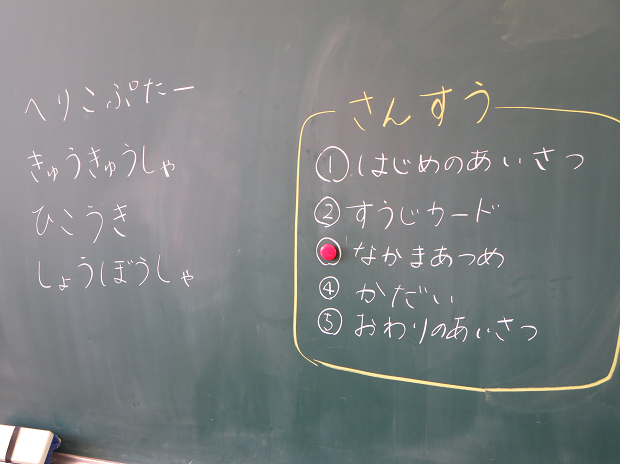 へりこぷたー
きゅうきゅうしゃ
ひこうき
しょうぼうしゃ
さんすう
① はじめのあいさつ
② すうじカード
なかまあつめ
④ かだい
⑤ おわりのあいさつ